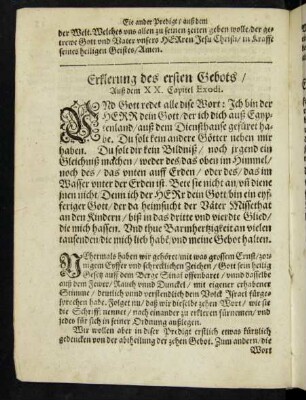 Die ander Predigt / auß dem
der Welt. Welches vns allen zu seinen zeiten geben wolle / der ge-
trewe Gott vnd Vater vnsers HERren Jesu Christi / in krafft
seines heiligen Geistes / Amen.
Erklerung des ersten Gebots /
Auß dem XX. Capitel Exodi.
VND Gott redet alle dise Wort: Ich bin der
HERR dein Gott / der ich dich auß Egyp-
tenland / auß dem Diensthause gefüret ha-
be. Du solt kein andere Götter neben mir
haben. Du solt dir kein Bildnuß / noch jrgend ein
Gleichnuß machen / weder des das oben im Himmel /
noch des / das vnten auff Erden / oder des / das im
Wasser vnter der Erden ist. Bete sie nicht an / vñ diene
jnen nicht. Denn ich der HERr dein Gott / bin ein eyf-
feriger Gott / der da heimsucht der Väter Missethat
an den Kindern / biß in das dritte vnd vierdte Glied /
die mich hassen. Vnd thue Barmhertzigkeit an vielen
tausenden / die mich lieb habẽ / vnd meine Gebot halten.
NEchtmals haben wir gehöret / mit was grossem Ernst / zor-
nigem Eyffer vnd schrecklichen Zeichen / Gott sein heilig
Gesetz auff dem Berge Sinai offenbaret / vnnd dasselbe
auß dem Fewer / Rauch vnnd Dunckel / mit eigener erhabener
Stimme / deutlich vnnd verstendlich dem Volck Israel fürge-
sprochen habe. Folget nu / daß wir dieselbe zehen Wort / wie sie
die Schrifft nennet / nach einander zu erkleren fürnemen / vnd
jedes für sich in seiner Ordnung außlegen.
Wir wollen aber in diser Predigt erstlich etwas kürtzlich
gedencken von der abtheilung der zehen Gebot. Zum andern / die
Wort